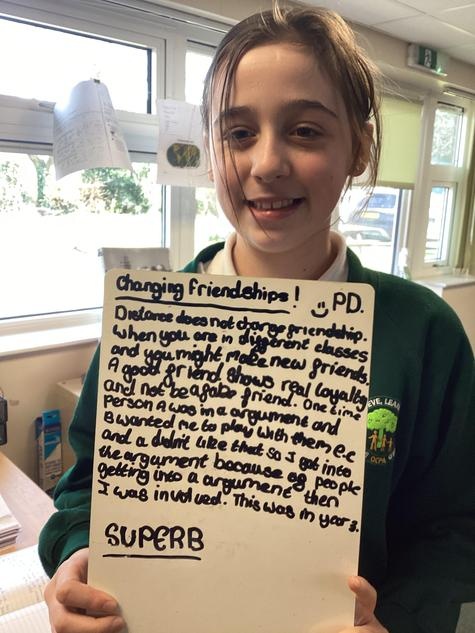 Changing friendships! PD.
Distance does not change friendship.
When you are in different classes
and you might make new friends.
A good friend shows real loyalty
and not be a fake friend. One time
person A was in a argument and
B wanted me to play with them
and a didn't like that so I got into
the argument because of people
getting into a argument then
I was involved. This was in year 3.
SUPERB
EVE, LEA
OCPA